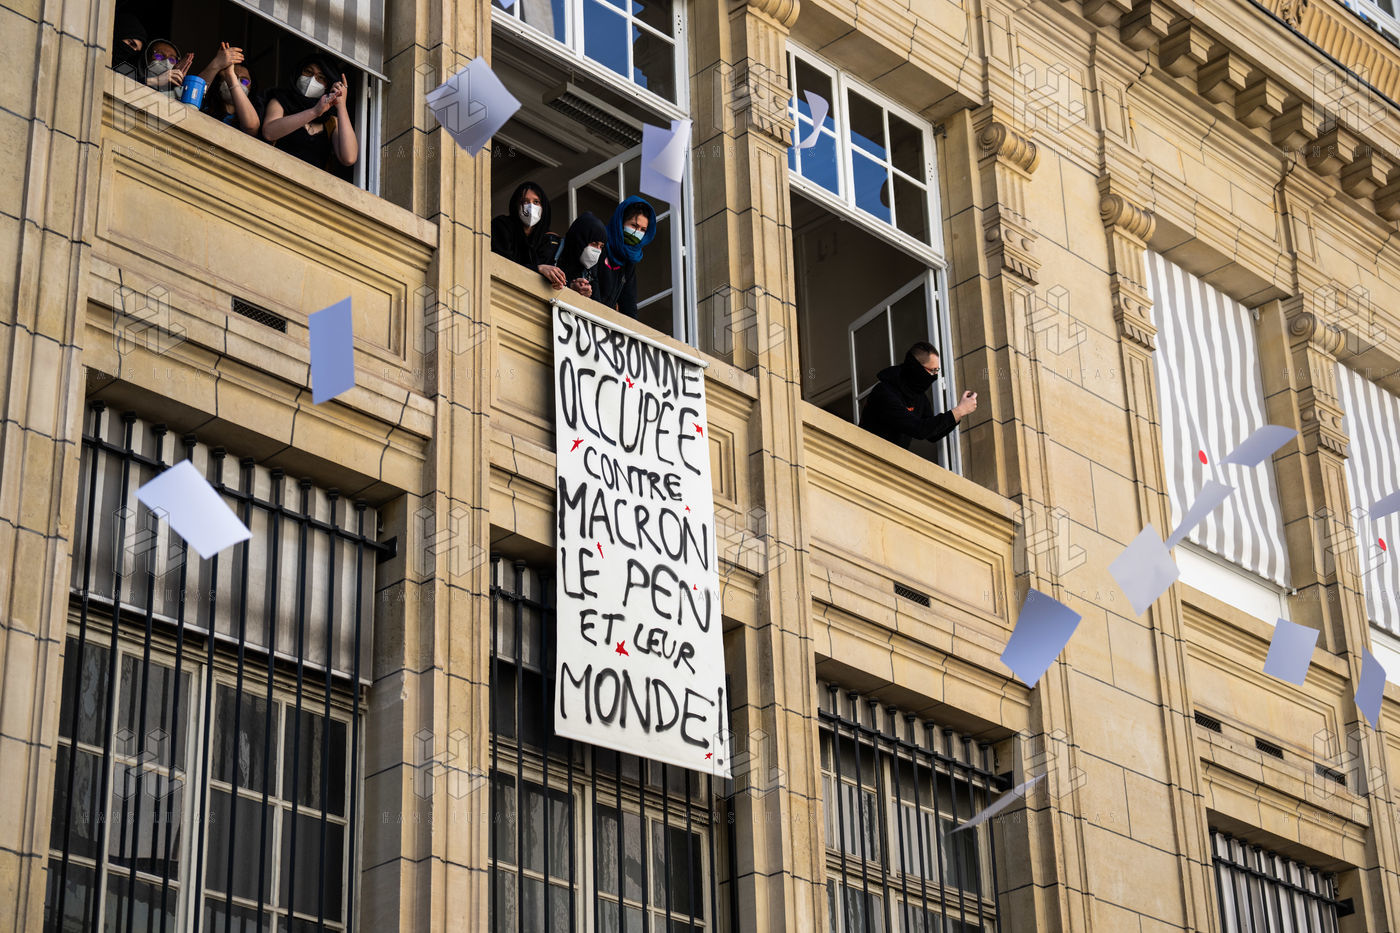 SORBONNE
OCCUPÉE
CONTRE
MACRON
LE PEN
ET LEUR
MONDE!
HANS LUCAS